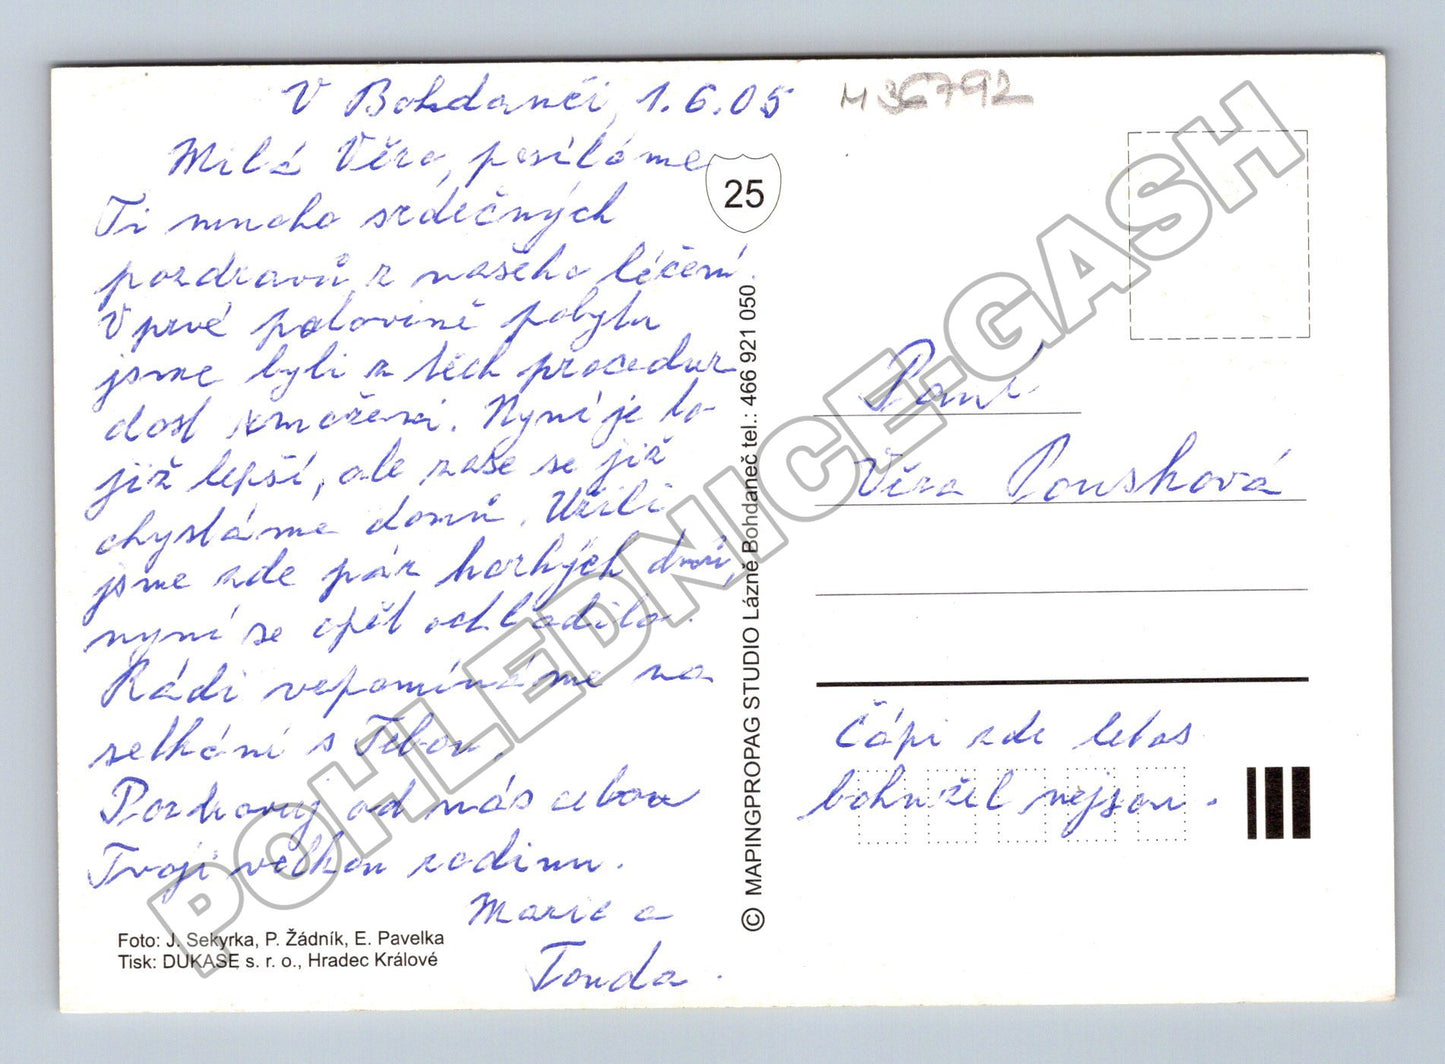 V Bohdanči, 1.6.05
Milá Věro, posíláme
Ti mnoho srdečných
pozdravů z našeho léčení.
V prvé polovině pobytu
jsme byli z těch procedur
dost zmoženi. Nyní je to
již lepší, ale zase se již
chystáme domů. Užili
jsme zde pár horkých dnů,
nyní se opět ochladilo.
Rádi vzpomínáme na
setkání s Tebou.
Pozdravuj od nás celou
Tvoji velkou rodinu.
Marie a
Tonda.
Foto: J. Sekyrka, P. Žádník, E. Pavelka
Tisk: DUKASE s. r. o., Hradec Králové
25
© MAPINGPROPAG STUDIO Lázně Bohdaneč tel.: 466 921 050
M36792
Paní
Věra Pousková
Čápi zde letos
bohužel nejsou.
POHLEDNICE-GASH